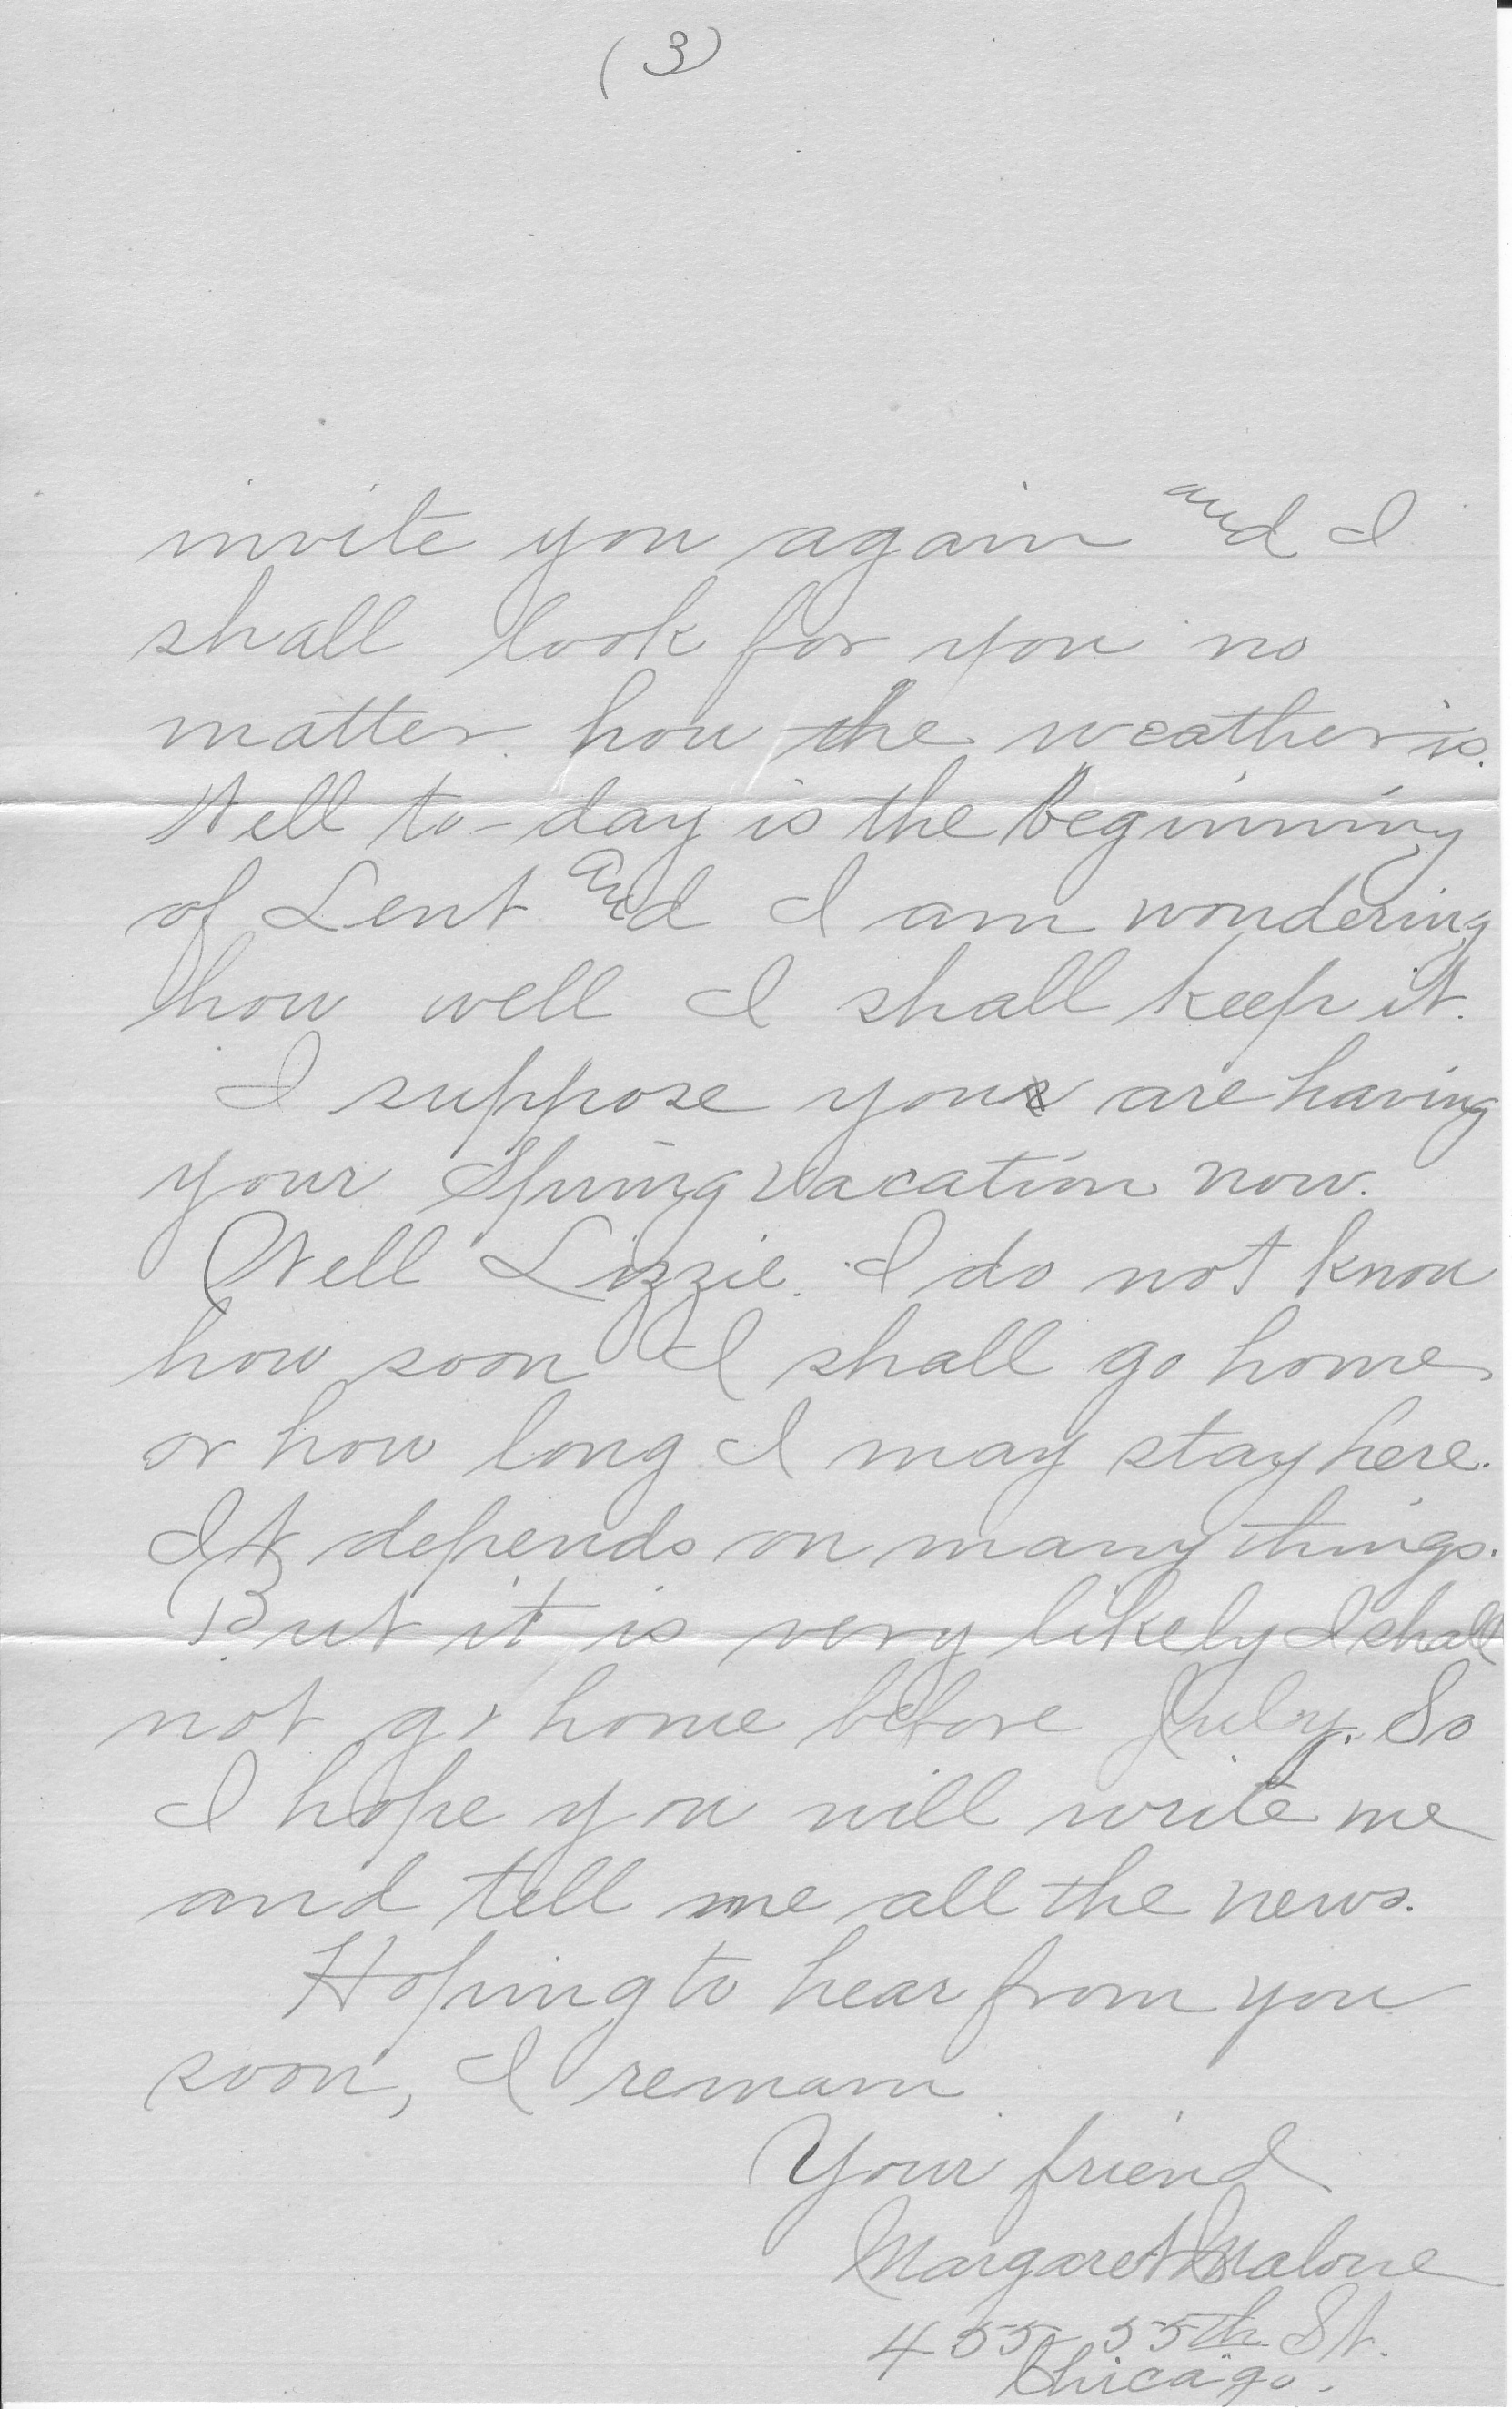 (3)
invite you again and I
shall look for you no
matter how the weather is.
Well to-day is the beginning
of Lent and I am wondering
how well I shall keep it.
I suppose you are having
your Spring vacation now.
Well Lizzie. I do not know
how soon I shall go home
or how long I may stay here.
It depends on many things.
But it is very likely I shall
not go home before July. So
I hope you will write me
and tell me all the news.
Hoping to hear from you
soon, I remain
Your friend
Margaret Malone
455 55th St.
Chicago.